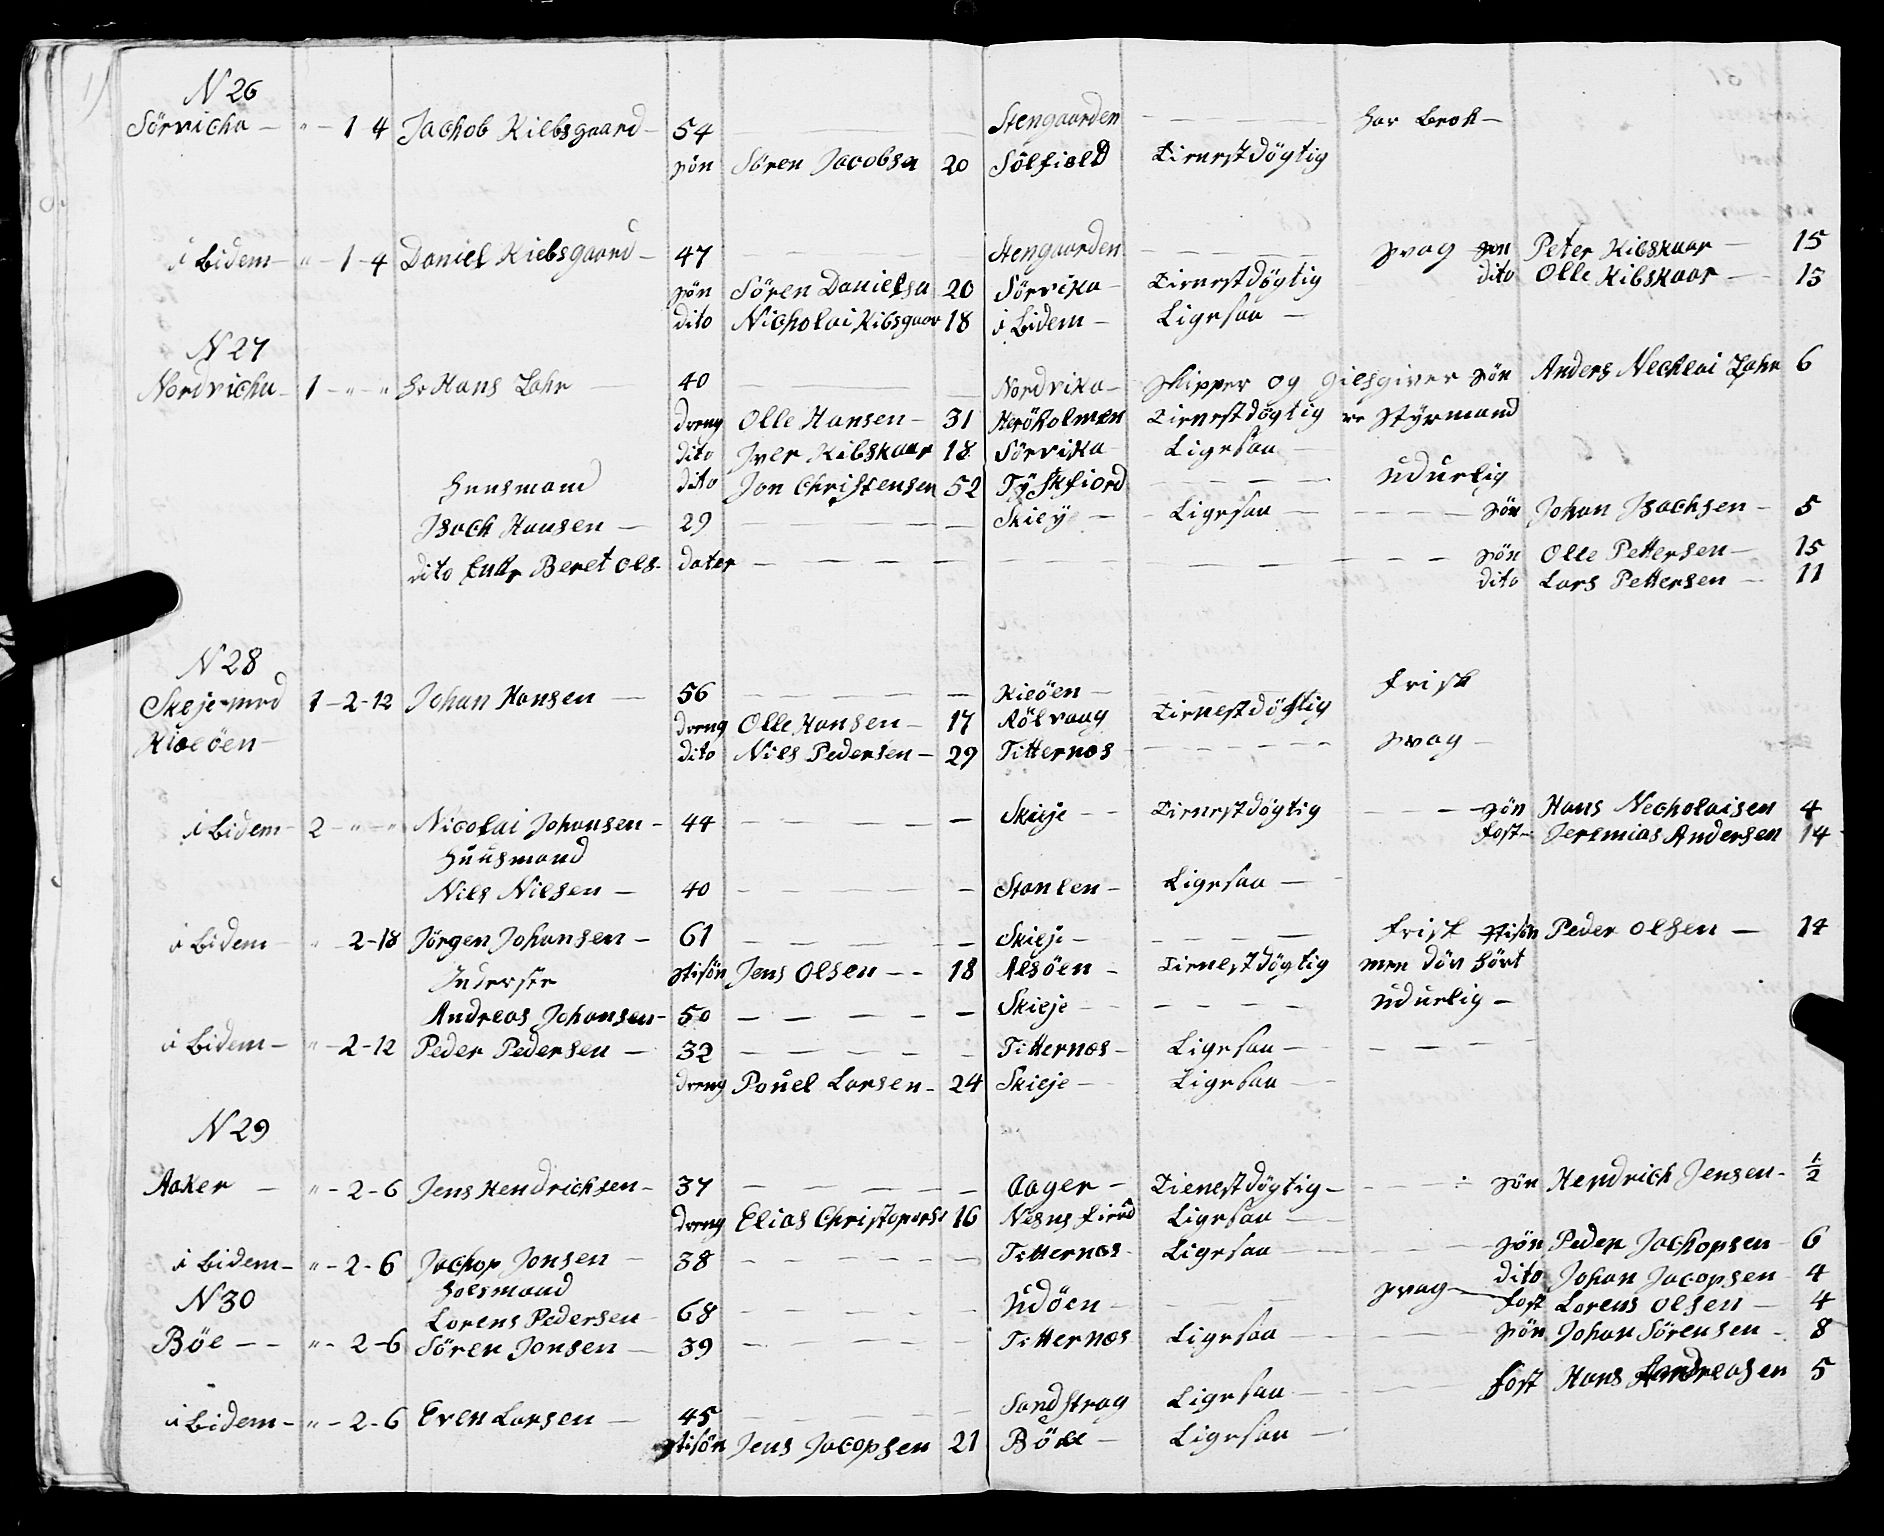 N 26
Sörvicha — " — 1 4 Jachob Kilbsgaard — 54 — Stengaarden — — — har brok —
sön Sören Jacobsn 20 Sölfield Tienestdögtig
ibidem — " — 1 — 4 Daniel Kiebsgaard — 47 — — Stengaarden — — — svag sön Peter Kibskaar — 15
sön Sören Danielsn 20 Sörvika — Tienestdögtig dito Olle Kibskaar — 13
dito Nicholai Kibsgaar 18 ibidem — Ligesaa —
N 27
Nordvicha — 1 — " — " Hr Hans Lahr — 40 — — Nordvika — Skipper og Giesgiver sön Anders Nechlai Lahr 6
dreng Olle Hansen — 31 Heröholmen Tienestdögtig er Styrmand
dito Iver Kibskaar 18 Sörvika — Ligesaa —
Huusmand dito Jon Christensen 52 Tyskfiord — — — udurlig
Isach Hansen — 29 — — — Skiey — — Ligesaa — — — — sön Johan Isachsen — 5
dito Enkr Beret Ols- dater — — — — — — — — — sön Olle Pettersen — 15
dito Lars Pettersen — 11
N 28
Skeje med 1 — 2 - 12 Johan Hansen — 56 — — — — — Kieöen — — — frisk
Kioeöen — dreng Olle Hansen — 17 Rölvaag Tienestdögtig
dito Nils Pedersen — 29 Titternæs — — — — — svag —
ibidem — 2 — " — " Nicolai Johansen — 44 — — — — — Skieje — — Tienestdögtig — — — sön Hans Necholaisen 4
Huusmand fost — Jeremias Andersen 14
Nils Nilsen — 40 — — — — — Stanlen — Ligesaa —
ibidem — " 2 - 18 Jörgen Johansen — 61 — — — — — Skieje — — — — — frisk stisön Peder Olsen — 14
Inderste stisön Jens Olsen — - 18 Alsöen — Tienestdögtig men döv hört
Andreas Johansen — 50 — — — — — Skieje — — — — — udurlig —
ibidem — " — 2 - 12 Peder Pedersen — 32 — — — — — Titternæs — Ligesaa — — — — —
dreng Pouel Larsen — 24 Skieje — — Ligesaa —
N 29
Aaker — " — 2 - 6 Jens Hendrichsen — 37 — — — — — Aager — Tienestdögtig — — — sön Hendrich Jensen — ½
dreng Elias Christopersn 16 Nesns fierd Ligesaa —
ibidem — " — 2 - 6 Jachop Jonsen — 38 — — — — — Titternæs — Ligesaa — — — — sön Peder Jachopsen — 6
Hoesmand dito Johan Jacopsen 4
N 30
Lorens Pedersen — 68 — — — — — Udöen — — — — svag — fost Lorens Olsen — 4
Böe — - " - 2 - 6 Sören Jonsen — 39 — — — — — Titternæs Ligesaa — — — — sön Johan Sörensen — 8
fost Hans Andreasen 5
ibidem — " — 2 - 6 Even Larsen — 45 — — — — — Sandstrag Ligesaa —
stisön Jens Jacopsen 21 Böee — Ligesaa —